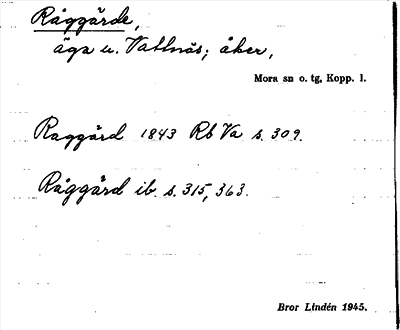 Råggärde,
äga u. Vattnäs; åker,
Mora sn o. tg, Kopp. l.
Raggård 1843 Rb Va s. 309.
Råggård ib. s. 315, 363.
Bror Lindén 1945.